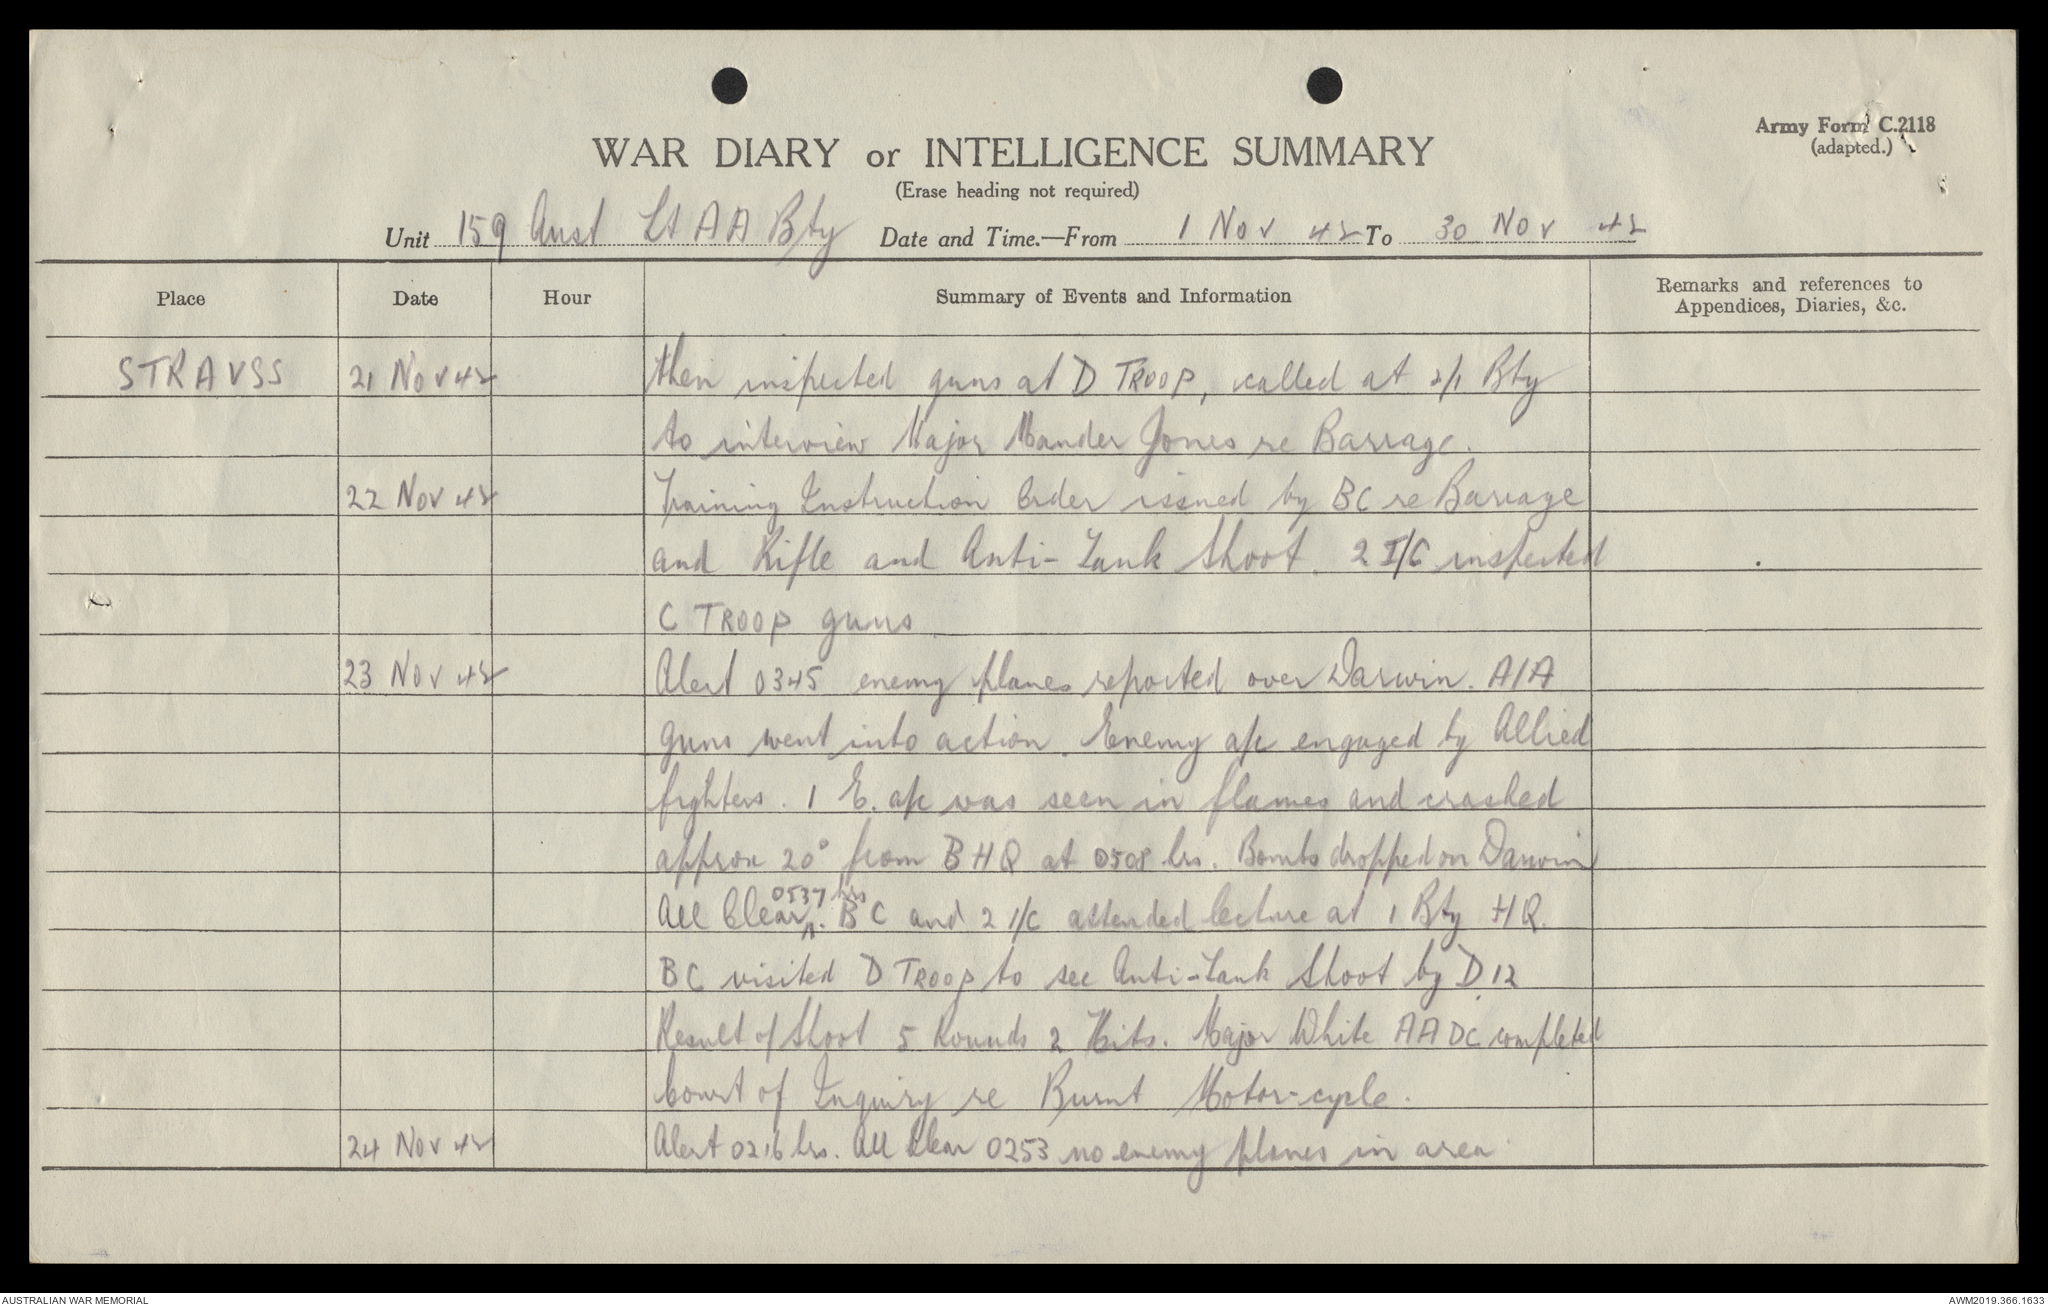 Army Form C.2118
(adapted.)
WAR DIARY or INTELLIGENCE SUMMARY
(Erase heading not required)
Unit 159 Aust Lt AA Bty Date and Time.—From 1 Nov 42 To 30 Nov 42
Place Date Hour Summary of Events and Information Remarks and references to Appendices, Diaries, &c.
STRAUSS 21 Nov 42 then inspected guns at D TROOP, called at 2/1 Bty
to interview Major Mander Jones re Barrage.
22 Nov 42 Training Instruction Order issued by BC re Barrage
and Rifle and Anti-Tank Shoot. 2 I/C inspected
C TROOP guns
23 Nov 42 Alert 0345 enemy planes reported over Darwin. A/A
guns went into action. Enemy a/c engaged by Allied
fighters. 1 E. a/c was seen in flames and crashed
approx 20° from BHQ at 0508 hrs. Bombs dropped on Darwin
All Clear 0537 hrs. BC and 2 I/C attended lecture at 1 Bty HQ.
BC visited D TROOP to see Anti-Tank Shoot by D12
Result of Shoot 5 Rounds 2 Hits. Major White AADC completed
Court of Inquiry re Burnt Motor-cycle.
24 Nov 42 Alert 0216 hrs. All Clear 0253 no enemy planes in area
AUSTRALIAN WAR MEMORIAL AWM2019.366.1633